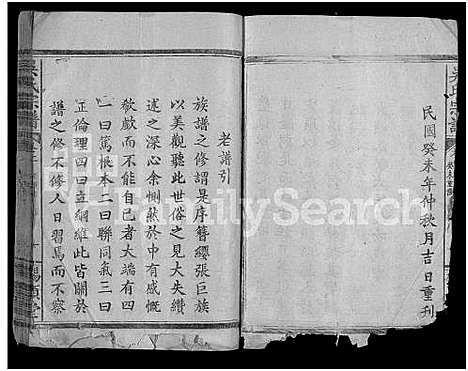 吳氏宗譜
民國癸未年仲秋月吉日重刊
老譜引
族譜之修謂是序簪纓張巨族
以美觀聽此世俗之見大失纘
述之深心余惻然於中有感慨
欷歔而不能自已者大端有四
一曰篤根本二曰聯同氣三曰
正倫理四曰立綱維此皆關於
譜之修不修人日習焉而不察
吳氏宗譜
FamilySearch